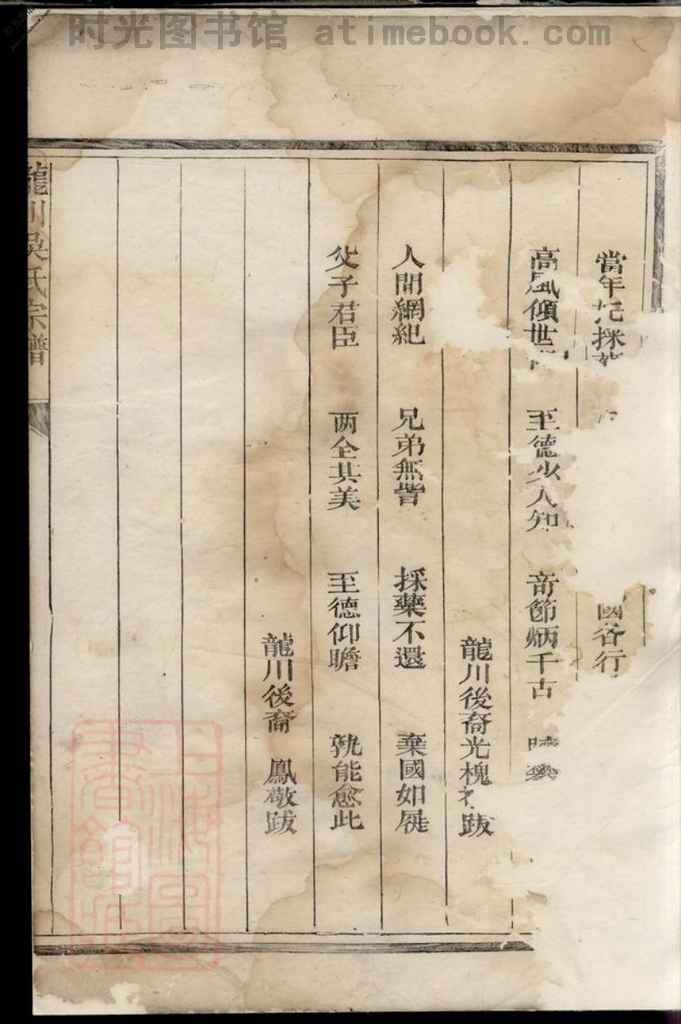 时光图书馆 atimebook.com
當年 採
國 行
高風傾世 至德少人知 奇節炳千古
龍川後裔光槐 跋
人間綱紀 兄弟無訾 採藥不還 棄國如屣
父子君臣 两全其美 至德仰瞻 孰能愈此
龍川後裔 鳳敬跋
龍川吳氏宗譜